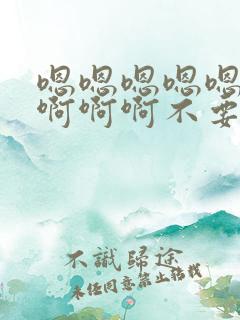 嗯嗯嗯嗯嗯
啊啊啊不要
不識歸途
未经同意禁止转载